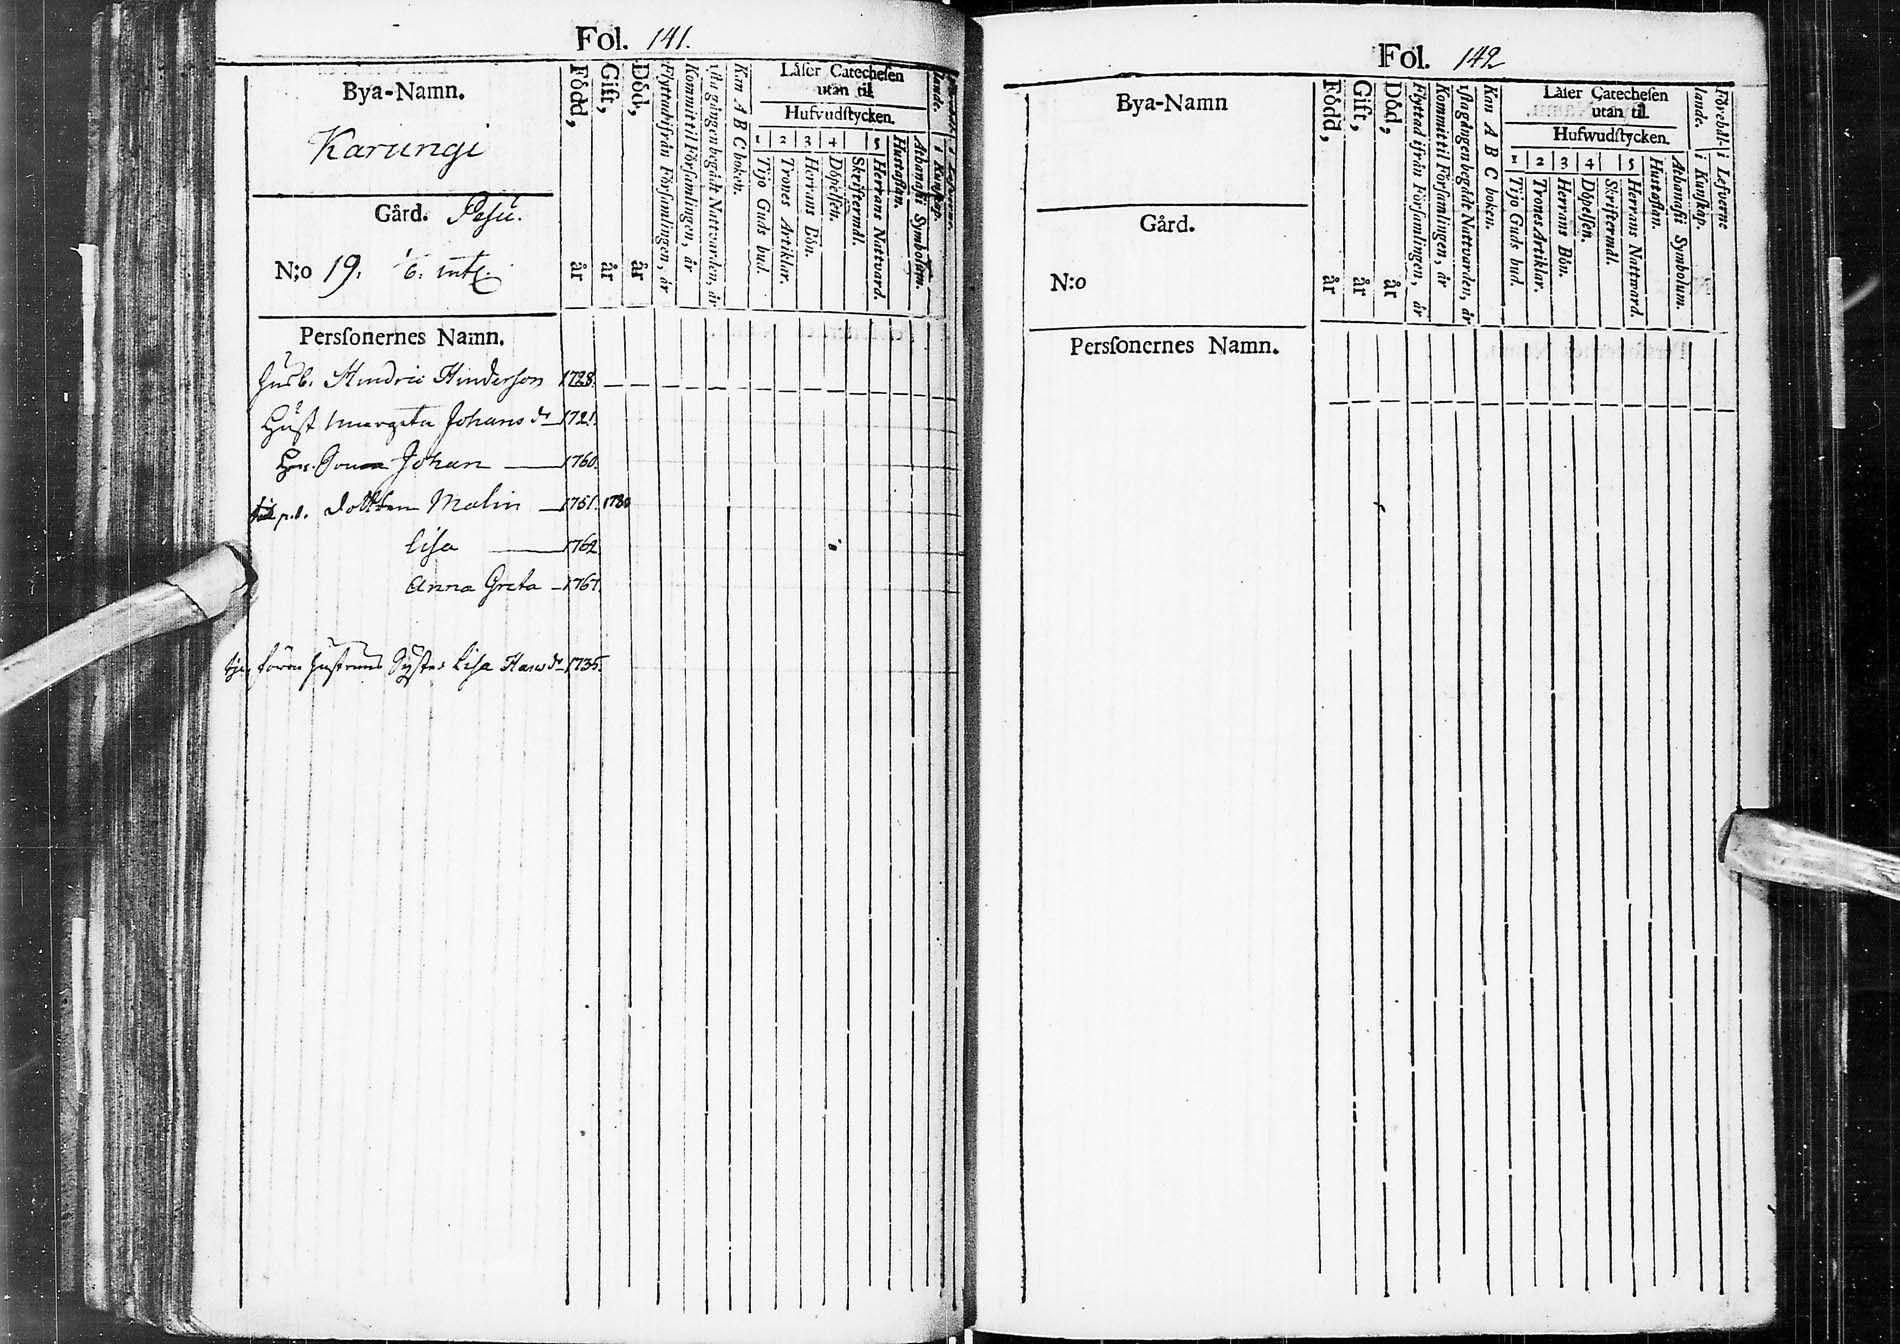 Fol. 141.
Bya-Namn.
Karungi
Gård. Pesu.
N:o 19.
Född, år
Gift, år
Död, år
Flyttad ifrån Församlingen, år
Kommit til Församlingen, år
1sta gången begådt Nattvarden, år
Kan A B C boken.
Låser Catechesen
utan til
Hufvudstycken.
1 Tijo Guds bud.
2 Trones Artiklar.
3 Herrans Bön.
4 Döpelsen.
Skriftermål.
5 Herrans Nattvard.
Hustaflan.
Athanasii Symbolum.
i Kunskap.
Personernes Namn.
Husb. Hindric Hinderson 1728.
Hust Margeta Johans dr 1721.
Son Johan 1760.
p.d. dottren Malin 1751. 1780
Lisa 1762
Anna Greta 1767.
hustruns Syster Lisa Hans dr 1735.
Fol. 142
Bya-Namn
Gård.
N:o
Född, år
Gift, år
Död, år
Flyttad ifrån Församlingen, år
Kommit til Församlingen, år
1sta gången begådt Nattvarden, år
Kan A B C boken.
Låser Catechesen
utan til.
Hufwudstycken.
1 Tijo Guds bud.
2 Trones Artiklar.
3 Herrans Bön.
4 Döpelsen.
Skriftermål.
5 Herrans Nattward.
Hustaflan.
Athanasii Symbolum.
Förehållande.
i Kunskap.
i Lefverne
Personernes Namn.